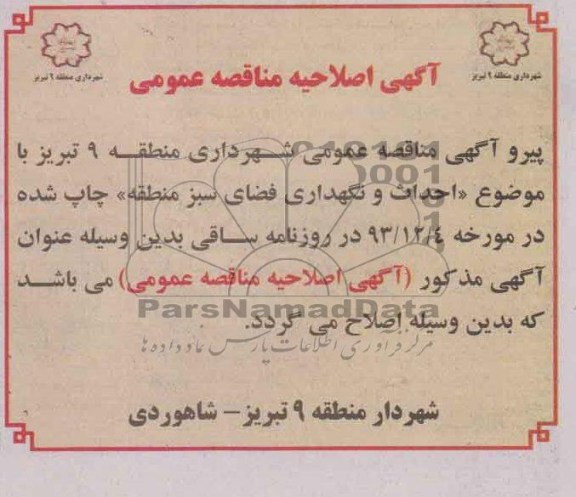 شهرداری منطقه ۹ تبریز
شهرداری منطقه ۹ تبریز
آگهی اصلاحیه مناقصه عمومی
پیرو آگهی مناقصه عمومی شهرداری منطقه ۹ تبریز با
موضوع «احداث و نگهداری فضای سبز منطقه» چاپ شده
در مورخه ۹۳/۱۲/٤ در روزنامه ساقی بدین وسیله عنوان
آگهی مذکور (آگهی اصلاحیه مناقصه عمومی) می باشد
ParsNamadData
که بدین وسیله اصلاح می گردد.
مرکز فرآوری اطلاعات پارس نماد داده ها
شهردار منطقه ۹ تبریز – شاهوردی